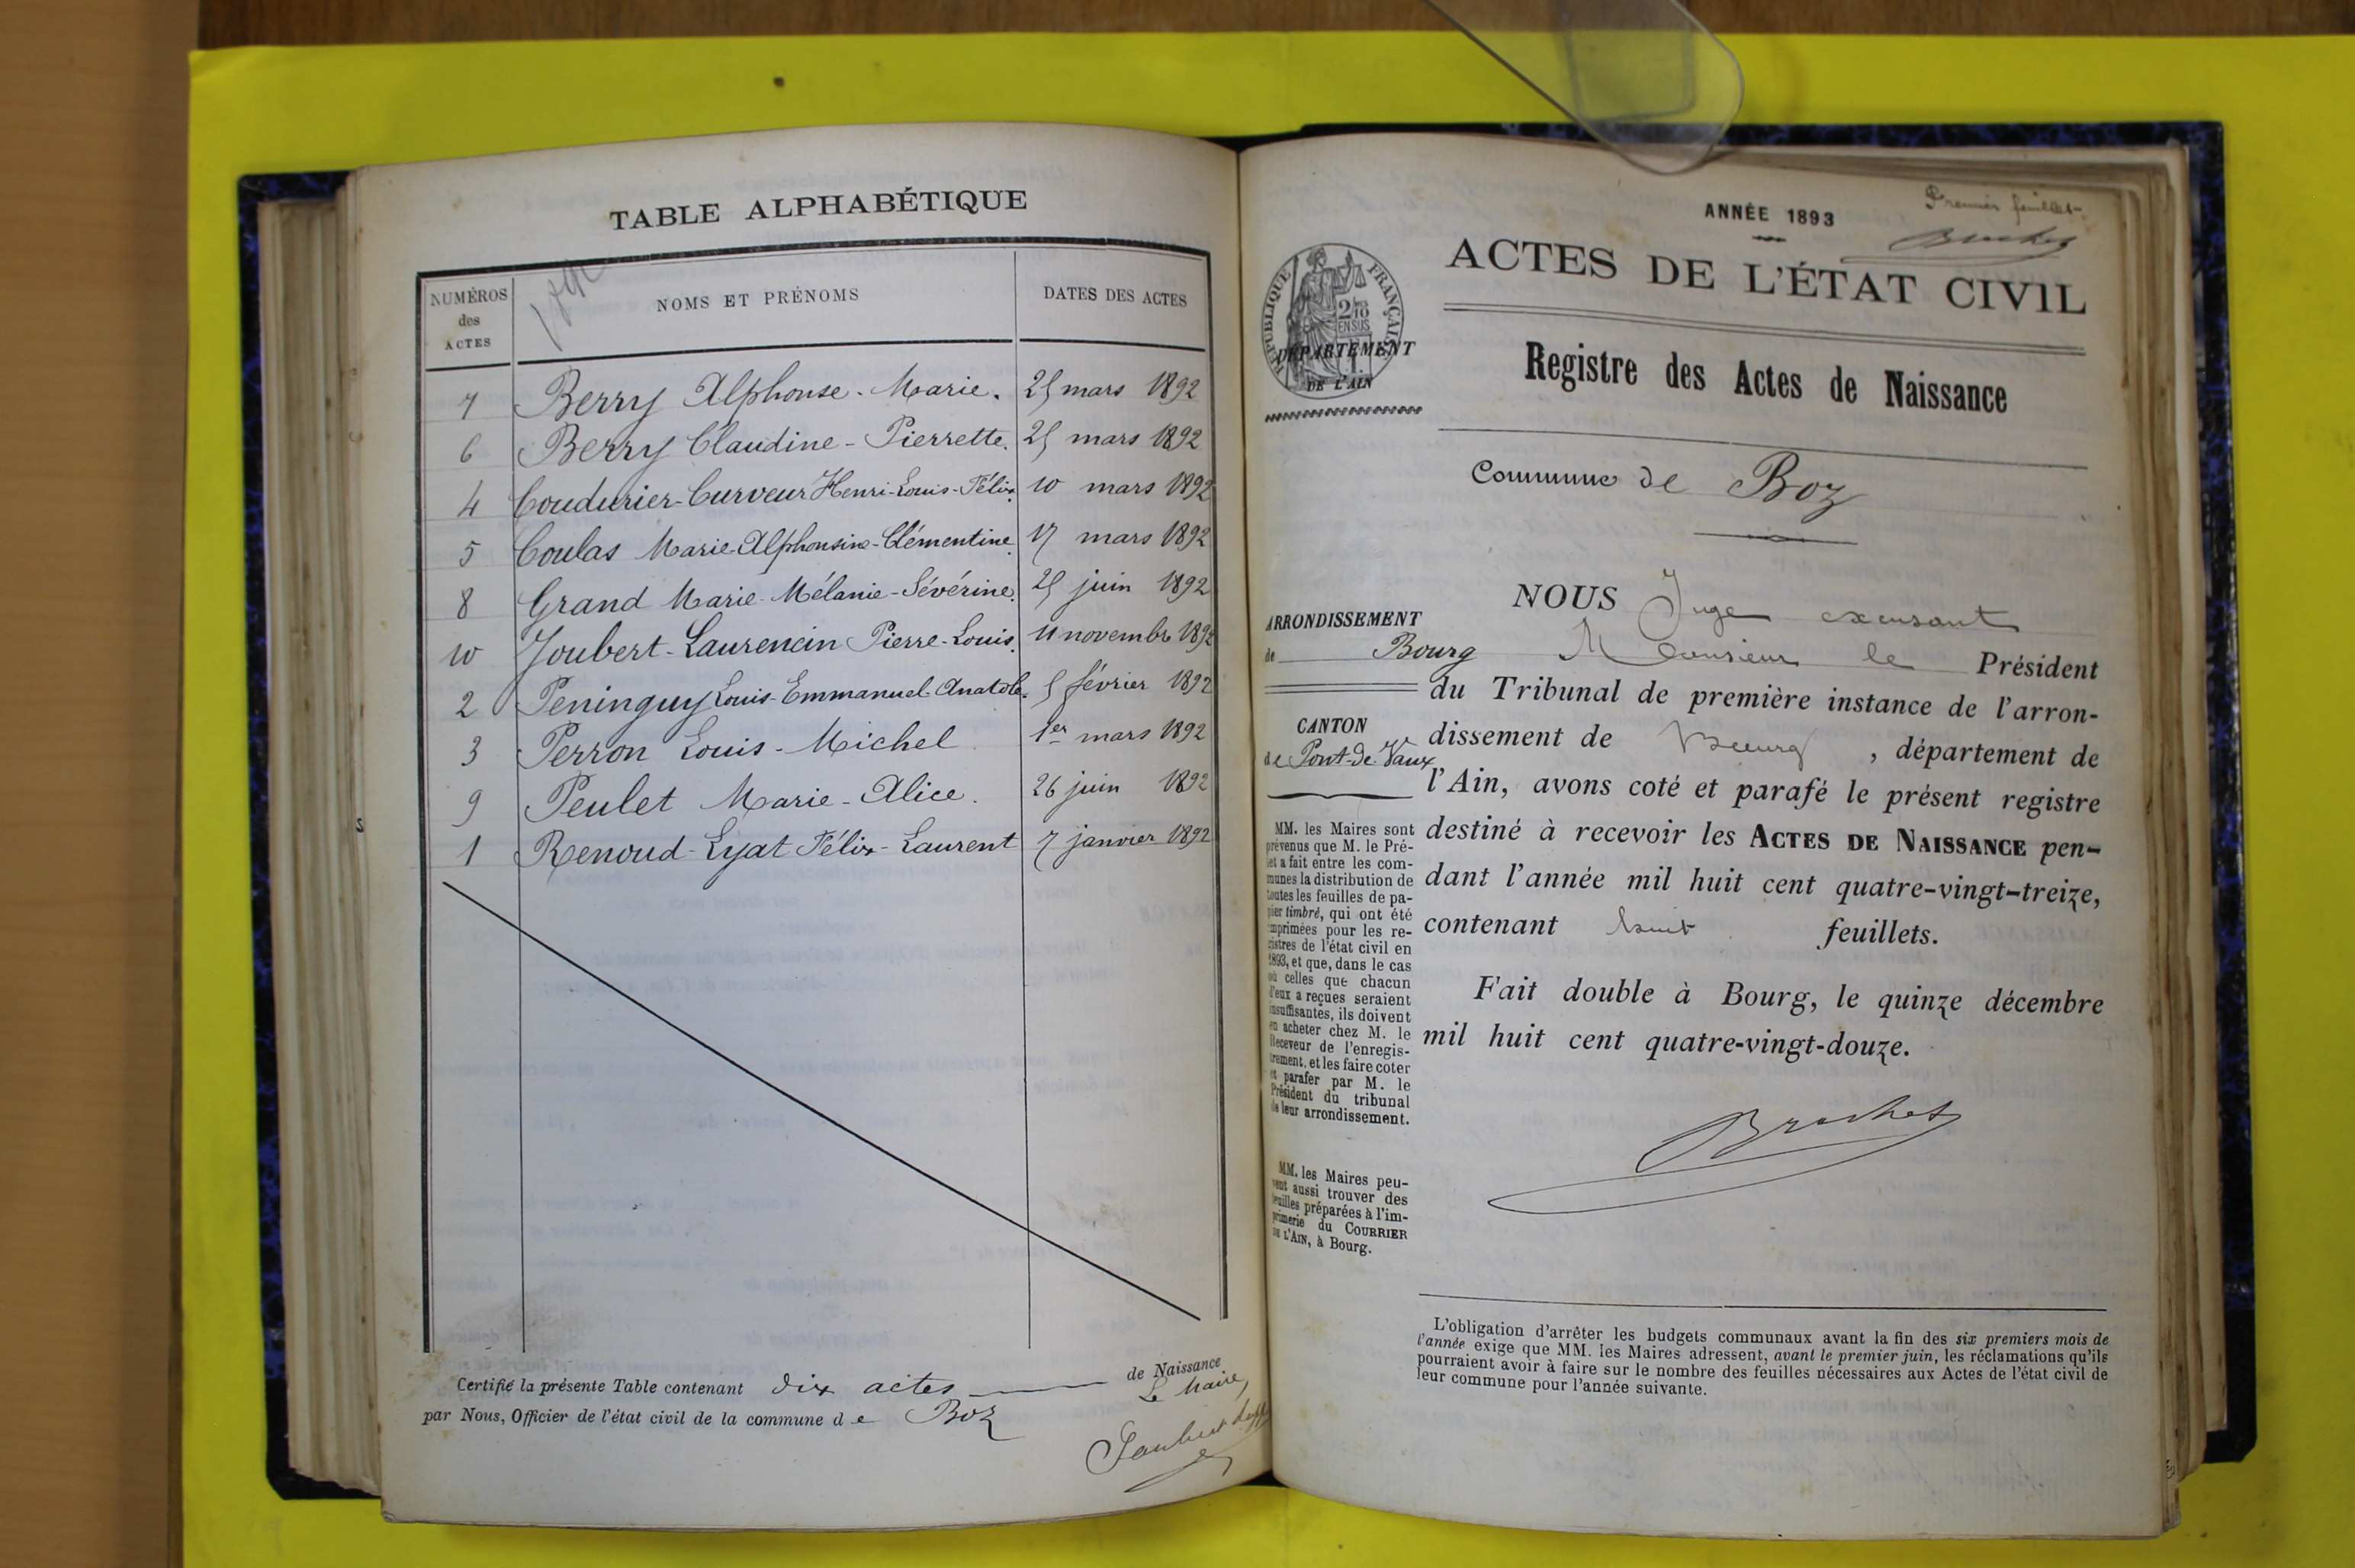 TABLE ALPHABÉTIQUE
NUMÉROS des ACTES NOMS ET PRÉNOMS DATES DES ACTES
7 Berry Alphonse-Marie. 25 mars 1892
6 Berry Claudine-Pierrette. 25 mars 1892
4 Coudurier-Curveur Henri-Louis-Félix. 10 mars 1892
5 Coulas Marie-Alphonsine-Clémentine. 17 mars 1892
8 Grand Marie-Mélanie-Sévérine. 25 juin 1892
10 Joubert-Laurencin Pierre-Louis. 11 novembre 1892
2 Peninguy Louis-Emmanuel-Anatole. 5 février 1892
3 Perron Louis-Michel 1er mars 1892
9 Peulet Marie-Alice. 26 juin 1892
1 Renoud-Lyat Félix-Laurent 7 janvier 1892
Certifié la présente Table contenant dix actes de Naissance
par Nous, Officier de l'état civil de la commune de Boz
Le Maire,
Premier feuillet.
Brochet
ANNÉE 1893
ACTES DE L'ÉTAT CIVIL
RÉPUBLIQUE FRANÇAISE
2/10 EN SUS
DÉPARTEMENT
DE L'AIN
Registre des Actes de Naissance
Commune de Boz
ARRONDISSEMENT
de Bourg
CANTON
de Pont-de-Vaux
MM. les Maires sont
prévenus que M. le Pré-
fet a fait entre les com-
munes la distribution de
toutes les feuilles de pa-
pier timbré, qui ont été
imprimées pour les re-
gistres de l'état civil en
1893, et que, dans le cas
où celles que chacun
d'eux a reçues seraient
insuffisantes, ils doivent
en acheter chez M. le
Receveur de l'enregis-
trement, et les faire coter
et parafer par M. le
Président du tribunal
de leur arrondissement.
MM. les Maires peu-
vent aussi trouver des
feuilles préparées à l'im-
primerie du COURRIER
DE L'AIN, à Bourg.
NOUS Juge
Monsieur le Président
du Tribunal de première instance de l'arron-
dissement de Bourg, département de
l'Ain, avons coté et parafé le présent registre
destiné à recevoir les ACTES DE NAISSANCE pen-
dant l'année mil huit cent quatre-vingt-treize,
contenant huit feuillets.
Fait double à Bourg, le quinze décembre
mil huit cent quatre-vingt-douze.
Brochet
L'obligation d'arrêter les budgets communaux avant la fin des six premiers mois de
l'année exige que MM. les Maires adressent, avant le premier juin, les réclamations qu'ils
pourraient avoir à faire sur le nombre des feuilles nécessaires aux Actes de l'état civil de
leur commune pour l'année suivante.